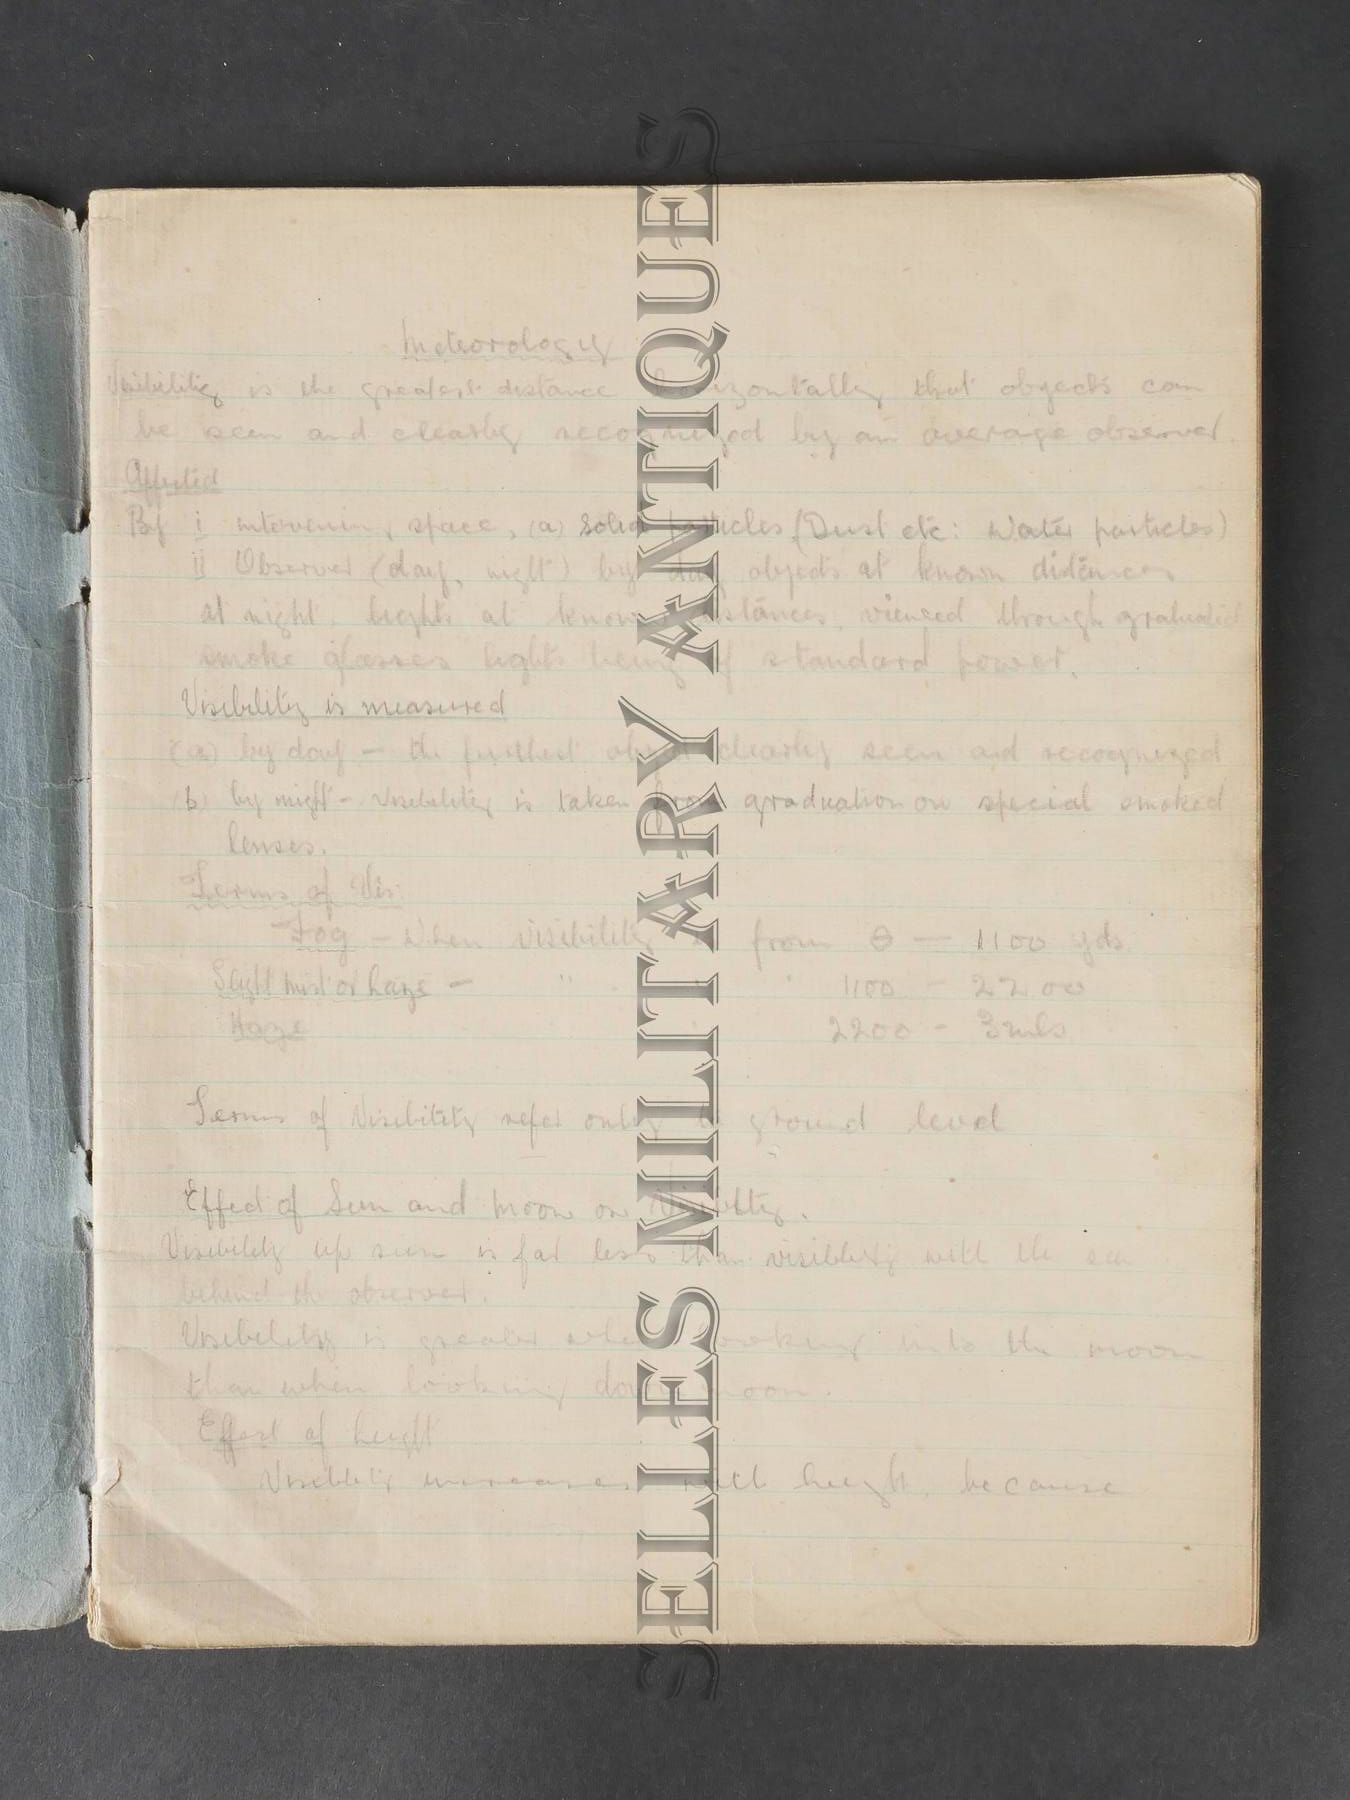 Meteorology
Visibility is the greatest distance horizontally that objects can
be seen and clearly recognized by an average observer.
Affected
By i intervening space, (a) Solid particles (Dust etc: Water particles)
ii Observer (day, night) by day objects at known distances
at night. lights at known distances, viewed through graduated
smoke glasses lights being of standard power.
Visibility is measured
(a) by day — the furthest object clearly seen and recognized
(b) by night - Visibility is taken from graduation on special smoked
lenses.
Terms of Vis:
Fog — When visibility is from 0 — 1100 yds.
Slight mist or haze — " " 1100 - 2200
Haze 2200 - 3 mls
Terms of Visibility refer only to ground level
Effect of Sun and Moon on Visibility.
Visibility up sun is far less than visibility with the sun
behind the observer.
Visibility is greater when looking into the moon
than when looking down moon.
Effect of height
Visibility increases with height, because
SELLES MILITARY ANTIQUES